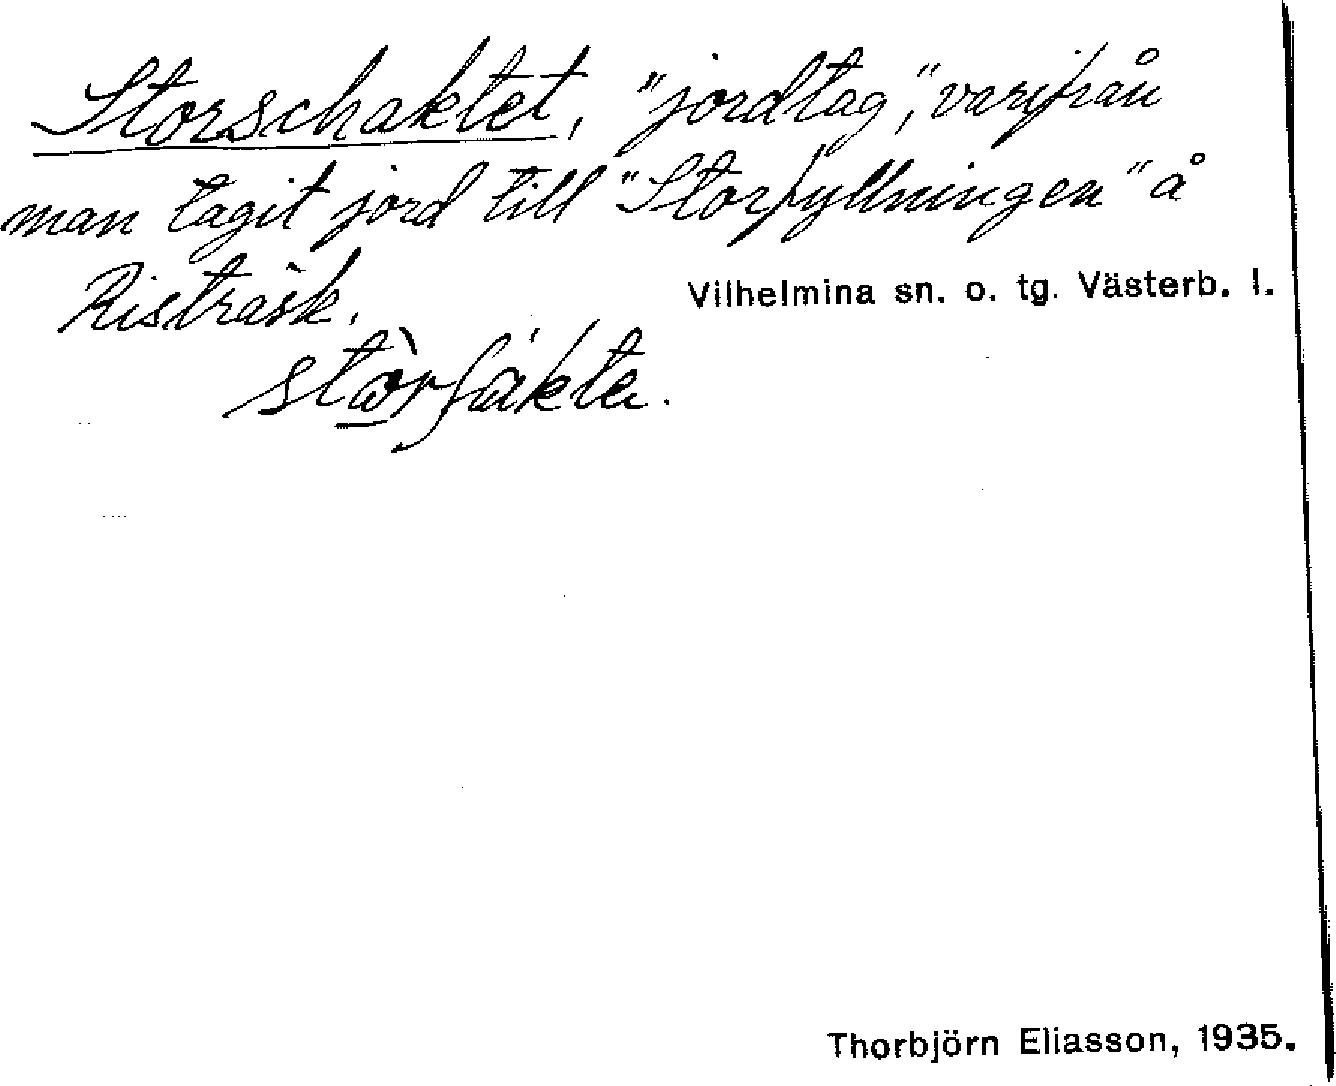 Storschaktet, "jordtag", varifrån
man tagit jord till "Storfyllningen" å
Risträsk.
Vilhelmina sn. o. tg. Västerb. l.
Thorbjörn Eliasson, 1935.